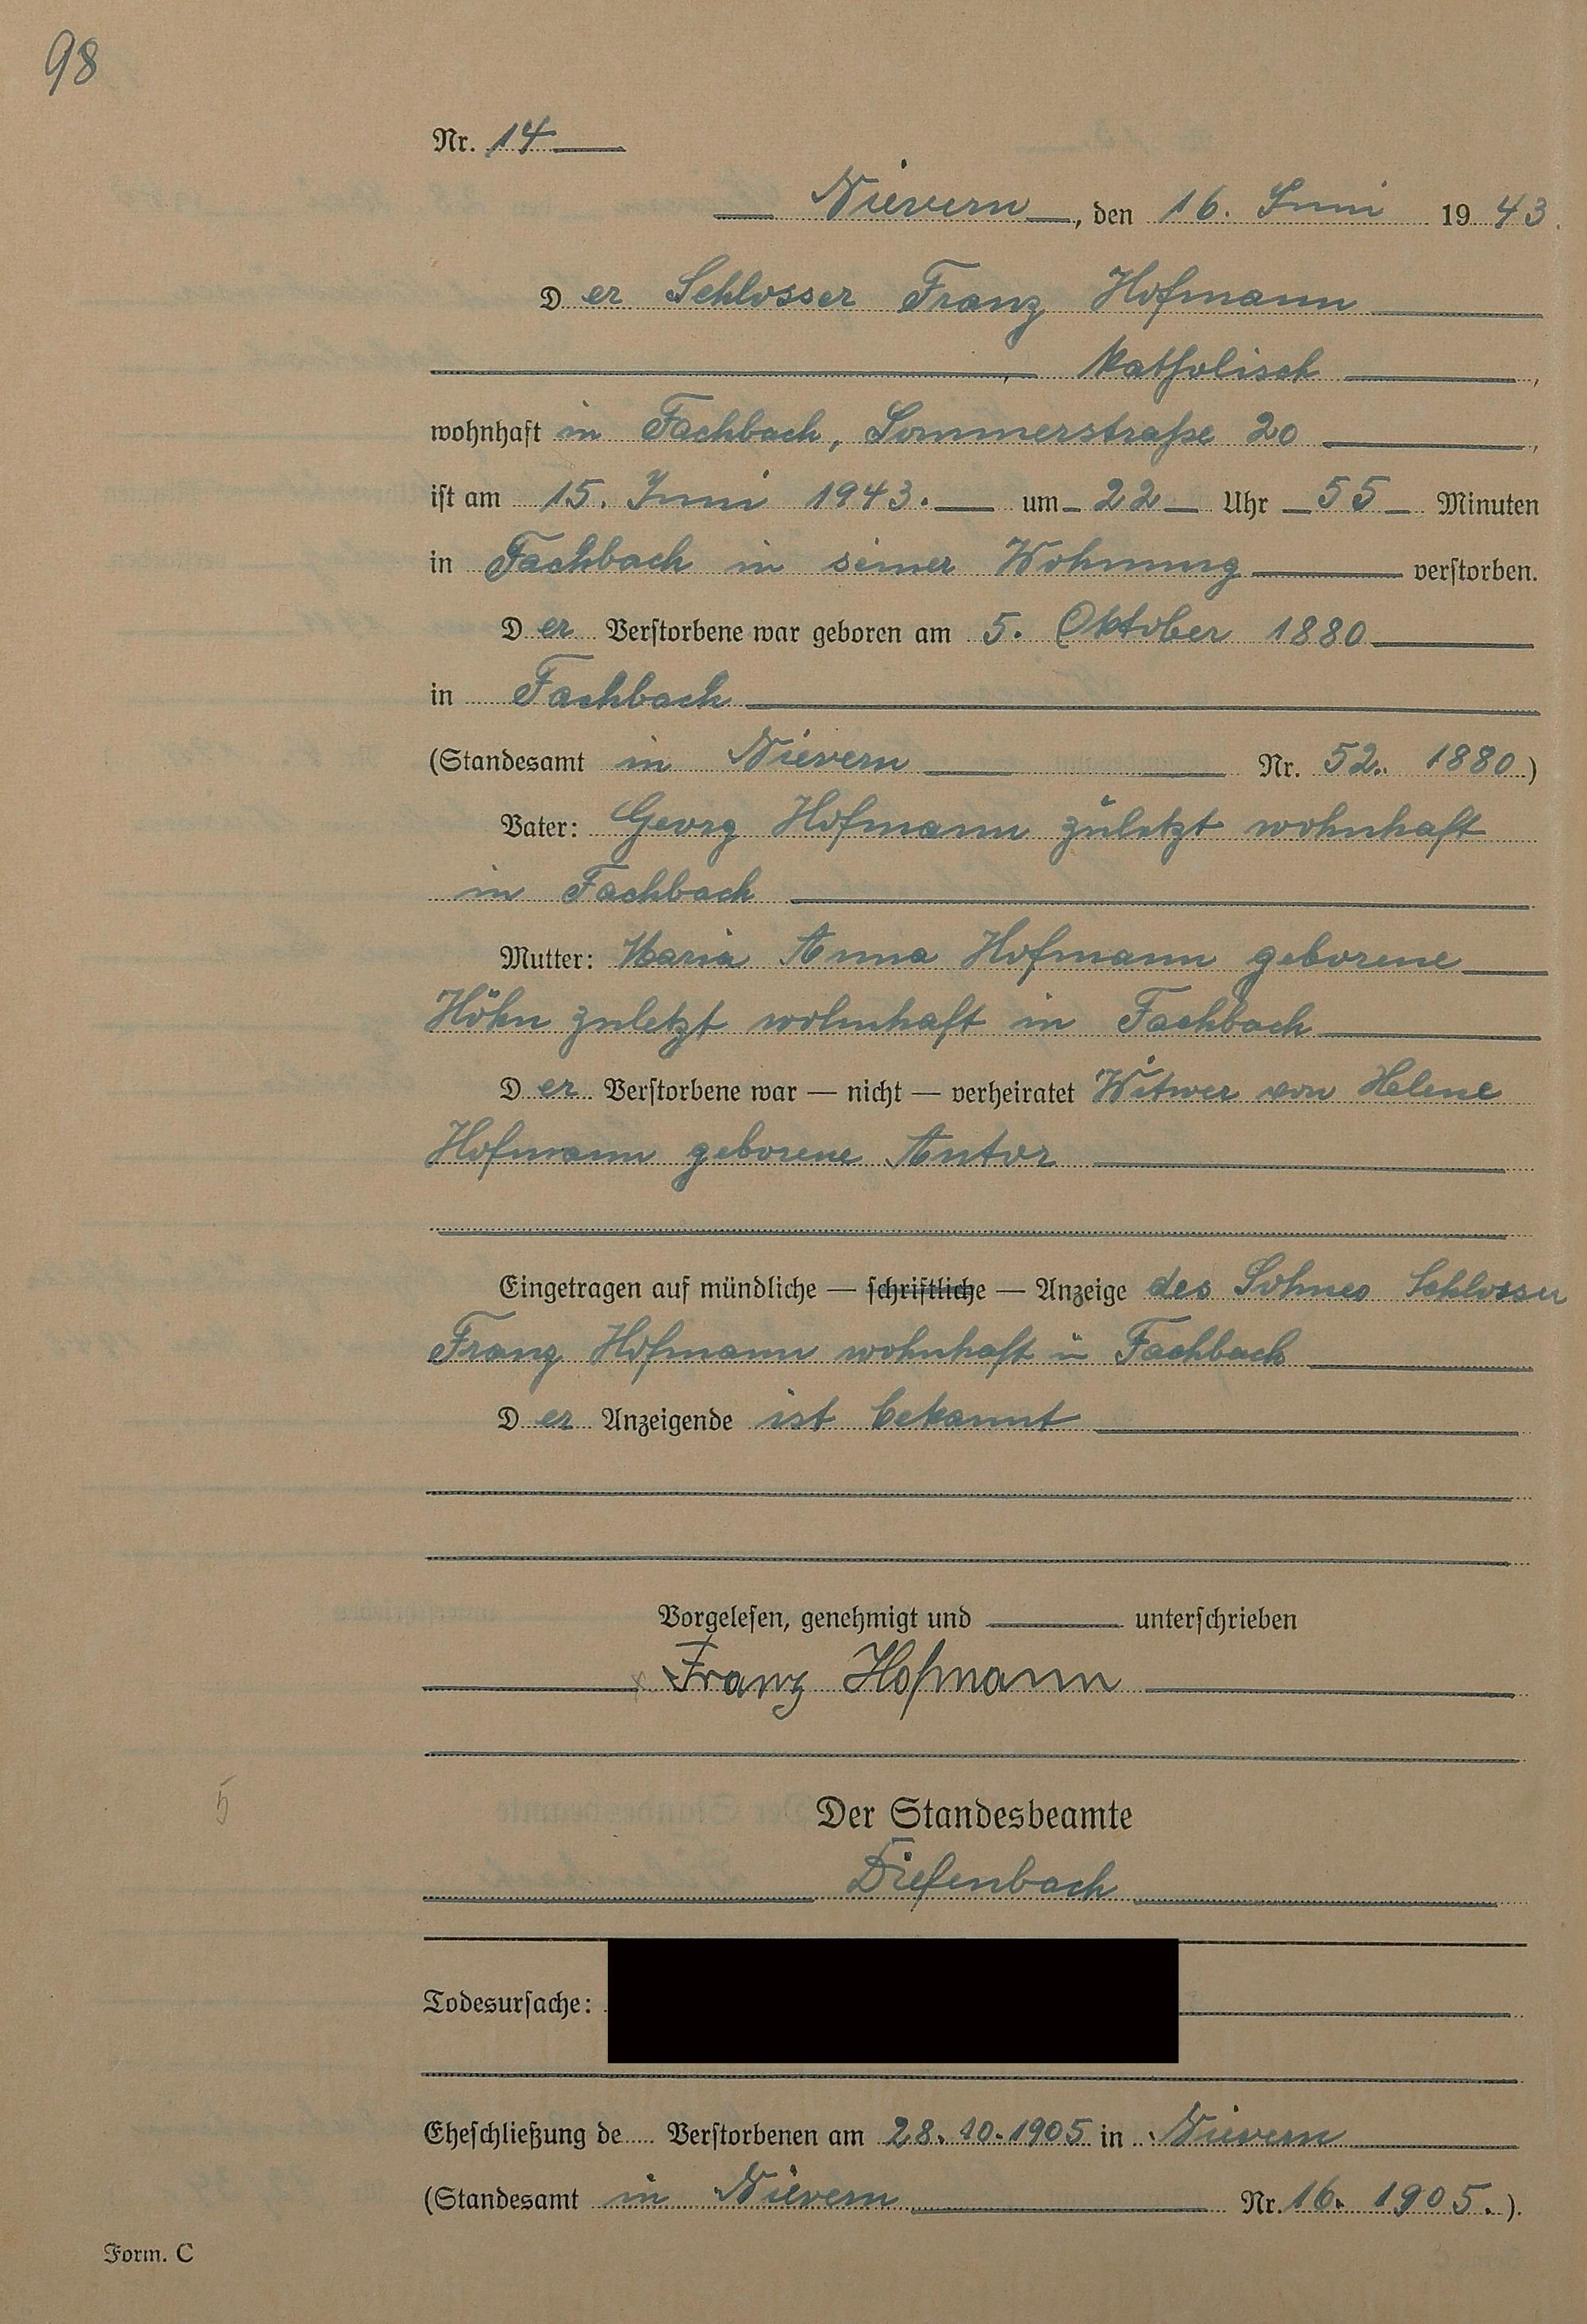 98
Nr. 14
Nievern, den 16. Juni 1943.
Der Schlosser Franz Hofmann
katholisch,
wohnhaft in Fachbach, Sommerstraße 20,
ist am 15. Juni 1943. um 22 Uhr 55 Minuten
in Fachbach in seiner Wohnung verstorben.
Der Verstorbene war geboren am 5. Oktober 1880
in Fachbach
(Standesamt in Nievern Nr. 52. 1880.)
Vater: Georg Hofmann zuletzt wohnhaft
in Fachbach
Mutter: Maria Anna Hofmann geborene
Höhn zuletzt wohnhaft in Fachbach
Der Verstorbene war — nicht — verheiratet Witwer von Helene
Hofmann geborene Antor
Eingetragen auf mündliche — schriftliche — Anzeige des Sohnes Schlosser
Franz Hofmann wohnhaft in Fachbach
Der Anzeigende ist bekannt
Vorgelesen, genehmigt und unterschrieben
Franz Hofmann
5
Der Standesbeamte
Diefenbach
Todesursache:
Eheschließung de.... Verstorbenen am 28.10.1905 in Nievern
(Standesamt in Nievern Nr. 16. 1905.).
Form. C